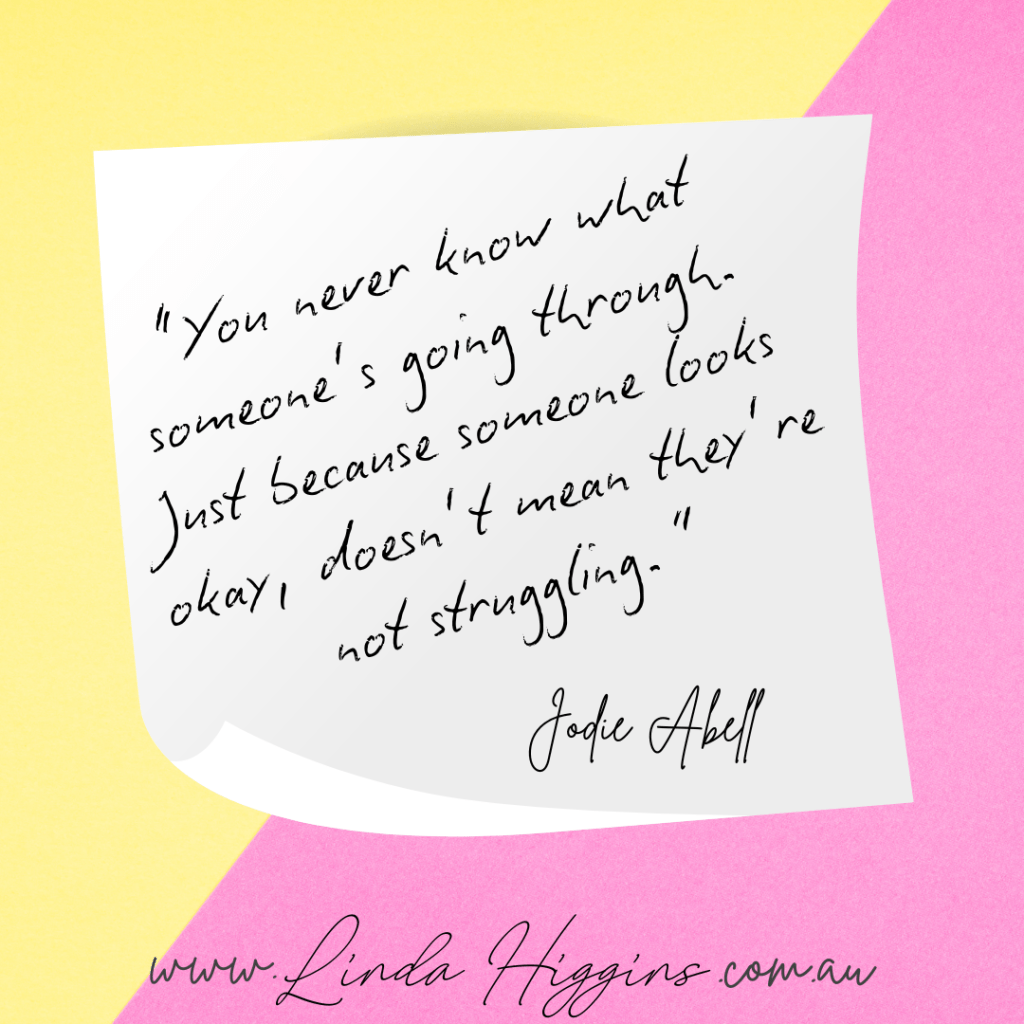 "You never know what
someone's going through.
Just because someone looks
okay, doesn't mean they're
not struggling."
Jodie Abell
www.Linda Higgins.com.au